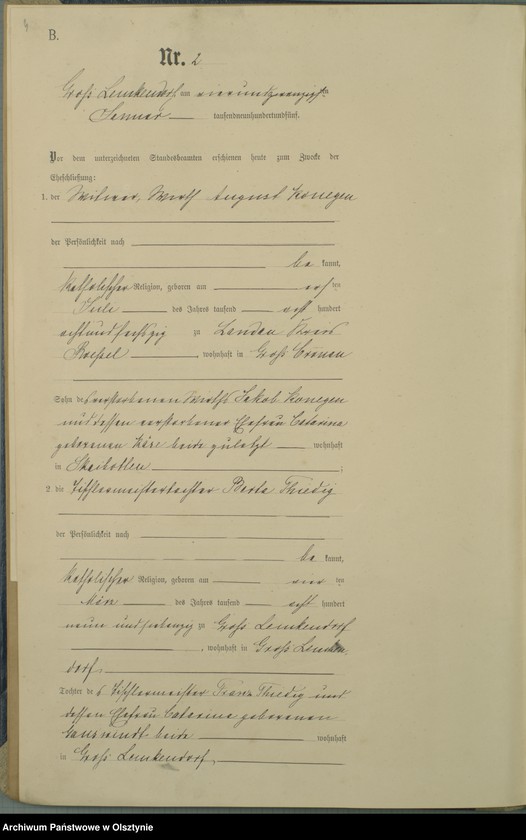 B.
Nr. 2
Groß Lemkendorf am vierundzwanzigsten
Januar tausendneunhundertundfünf.
Vor dem unterzeichneten Standesbeamten erschienen heute zum Zwecke der
Eheschließung:
1. der Witwer, Wirth August Konegen
der Persönlichkeit nach
be kannt,
katholischer Religion, geboren am ten
Juli des Jahres tausend acht hundert
achtundsechszig zu Kreis
Roessel, wohnhaft in Groß Cronau
Sohn des verstorbenen Wirths Jakob Konegen
und dessen verstorbener Ehefrau Catarina
geborenen beide zuletzt wohnhaft
in Skaibotten;
2. die Tischlermeistertochter Berta Thiedig
der Persönlichkeit nach
be kannt,
katholischer Religion, geboren am vier ten
März des Jahres tausend acht hundert
neun und siebenzig zu Groß Lemkendorf
, wohnhaft in Groß Lemken-
dorf,
Tochter des Tischlermeister Franz Thiedig und
dessen Ehefrau Catarina geborenen
beide wohnhaft
in Groß Lemkendorf,
Archiwum Państwowe w Olsztynie